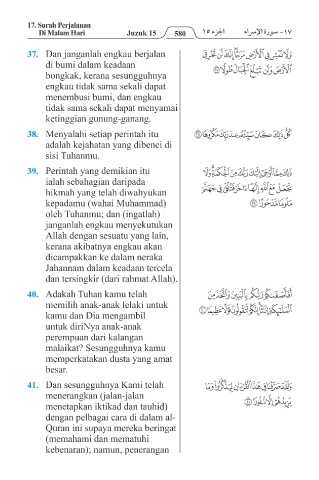 17. Surah Perjalanan
Di Malam Hari Juzuk 15 580 الجزء ١٥ ١٧ - سورة الإسراء
37. Dan janganlah engkau berjalan
di bumi dalam keadaan
bongkak, kerana sesungguhnya
engkau tidak sama sekali dapat
menembusi bumi, dan engkau
tidak sama sekali dapat menyamai
ketinggian gunung-ganang.
وَلَا تَمْشِ فِي الْأَرْضِ مَرَحًا إِنَّكَ لَن تَخْرِقَ
الْأَرْضَ وَلَن تَبْلُغَ الْجِبَالَ طُولًا ٣٧
38. Menyalahi setiap perintah itu
adalah kejahatan yang dibenci di
sisi Tuhanmu.
كُلُّ ذَٰلِكَ كَانَ سَيِّئُهُ عِندَ رَبِّكَ مَكْرُوهًا ٣٨
39. Perintah yang demikian itu
ialah sebahagian daripada
hikmah yang telah diwahyukan
kepadamu (wahai Muhammad)
oleh Tuhanmu; dan (ingatlah)
janganlah engkau menyekutukan
Allah dengan sesuatu yang lain,
kerana akibatnya engkau akan
dicampakkan ke dalam neraka
Jahannam dalam keadaan tercela
dan tersingkir (dari rahmat Allah).
ذَٰلِكَ مِمَّا أَوْحَىٰ إِلَيْكَ رَبُّكَ مِنَ الْحِكْمَةِ وَلَا
تَجْعَلْ مَعَ اللَّهِ إِلَٰهًا آخَرَ فَتُلْقَىٰ فِي جَهَنَّمَ
مَلُومًا مَّدْحُورًا ٣٩
40. Adakah Tuhan kamu telah
memilih anak-anak lelaki untuk
kamu dan Dia mengambil
untuk diriNya anak-anak
perempuan dari kalangan
malaikat? Sesungguhnya kamu
memperkatakan dusta yang amat
besar.
أَفَأَصْفَاكُمْ رَبُّكُم بِالْبَنِينَ وَاتَّخَذَ مِنَ
الْمَلَائِكَةِ إِنَاثًا إِنَّكُمْ لَتَقُولُونَ قَوْلًا عَظِيمًا ٤٠
41. Dan sesungguhnya Kami telah
menerangkan (jalan-jalan
menetapkan iktikad dan tauhid)
dengan pelbagai cara di dalam al-
Quran ini supaya mereka beringat
(memahami dan mematuhi
kebenaran); namun, penerangan
وَلَقَدْ صَرَّفْنَا فِي هَٰذَا الْقُرْآنِ لِيَذَّكَّرُوا وَمَا
يَزِيدُهُمْ إِلَّا نُفُورًا ٤١